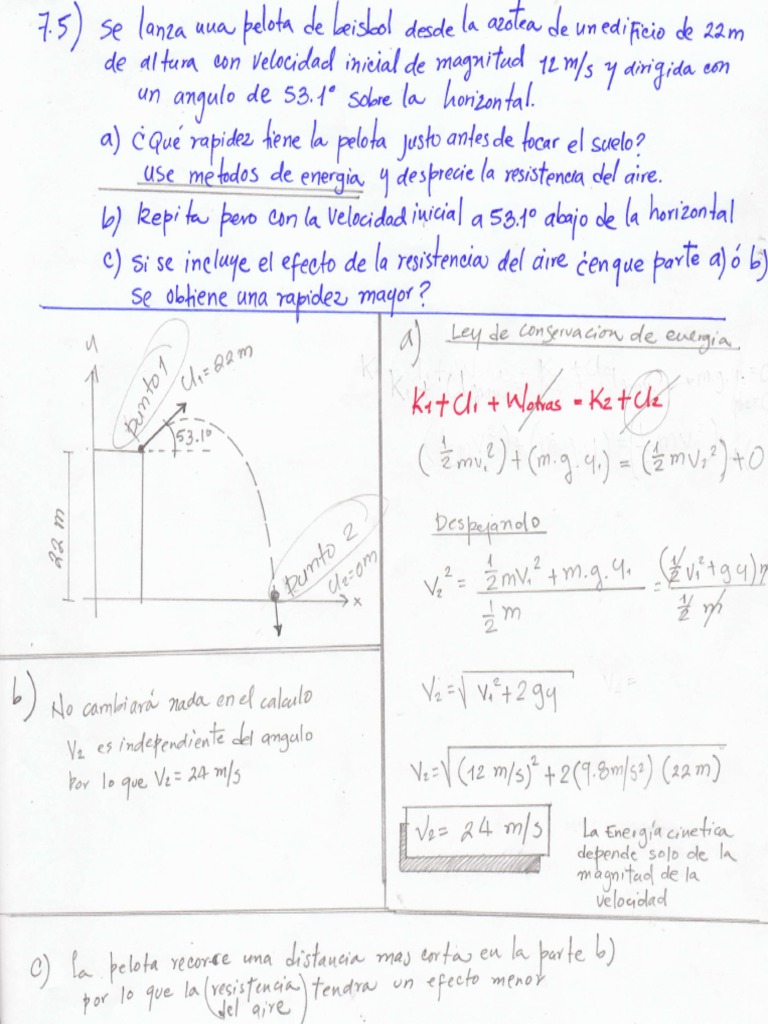 7.5) Se lanza una pelota de beisbol desde la azotea de un edificio de 22m
de altura con velocidad inicial de magnitud 12 m/s y dirigida con
un angulo de 53.1° sobre la horizontal.
a) ¿Qué rapidez tiene la pelota justo antes de tocar el suelo?
use metodos de energia y desprecie la resistencia del aire.
b) Repita pero con la velocidad inicial a 53.1° abajo de la horizontal
c) Si se incluye el efecto de la resistencia del aire ¿en que parte a) ó b)
se obtiene una rapidez mayor?
y
punto 1
y₁=22m
53.1°
22 m
punto 2
y₂=0m
x
a) Ley de conservacion de energia
K₁+U₁+Wotras = K₂+U₂
(½mv₁²)+(m.g.y₁) = (½mv₂²)+0
Despejando
V₂² = (½mV₁²+m.g.y₁)/(½m) = (½v₁²+gy)m/(½m)
V₂=√(V₁²+2gy)
V₂=√((12 m/s)²+2(9.8m/s²)(22m))
V₂= 24 m/s
La Energía cinetica
depende solo de la
magnitud de la
velocidad
b) No cambiará nada en el calculo
V₂ es independiente del angulo
por lo que V₂=24 m/s
c) la pelota recorre una distancia mas corta en la parte b)
por lo que la (resistencia del aire) tendra un efecto menor